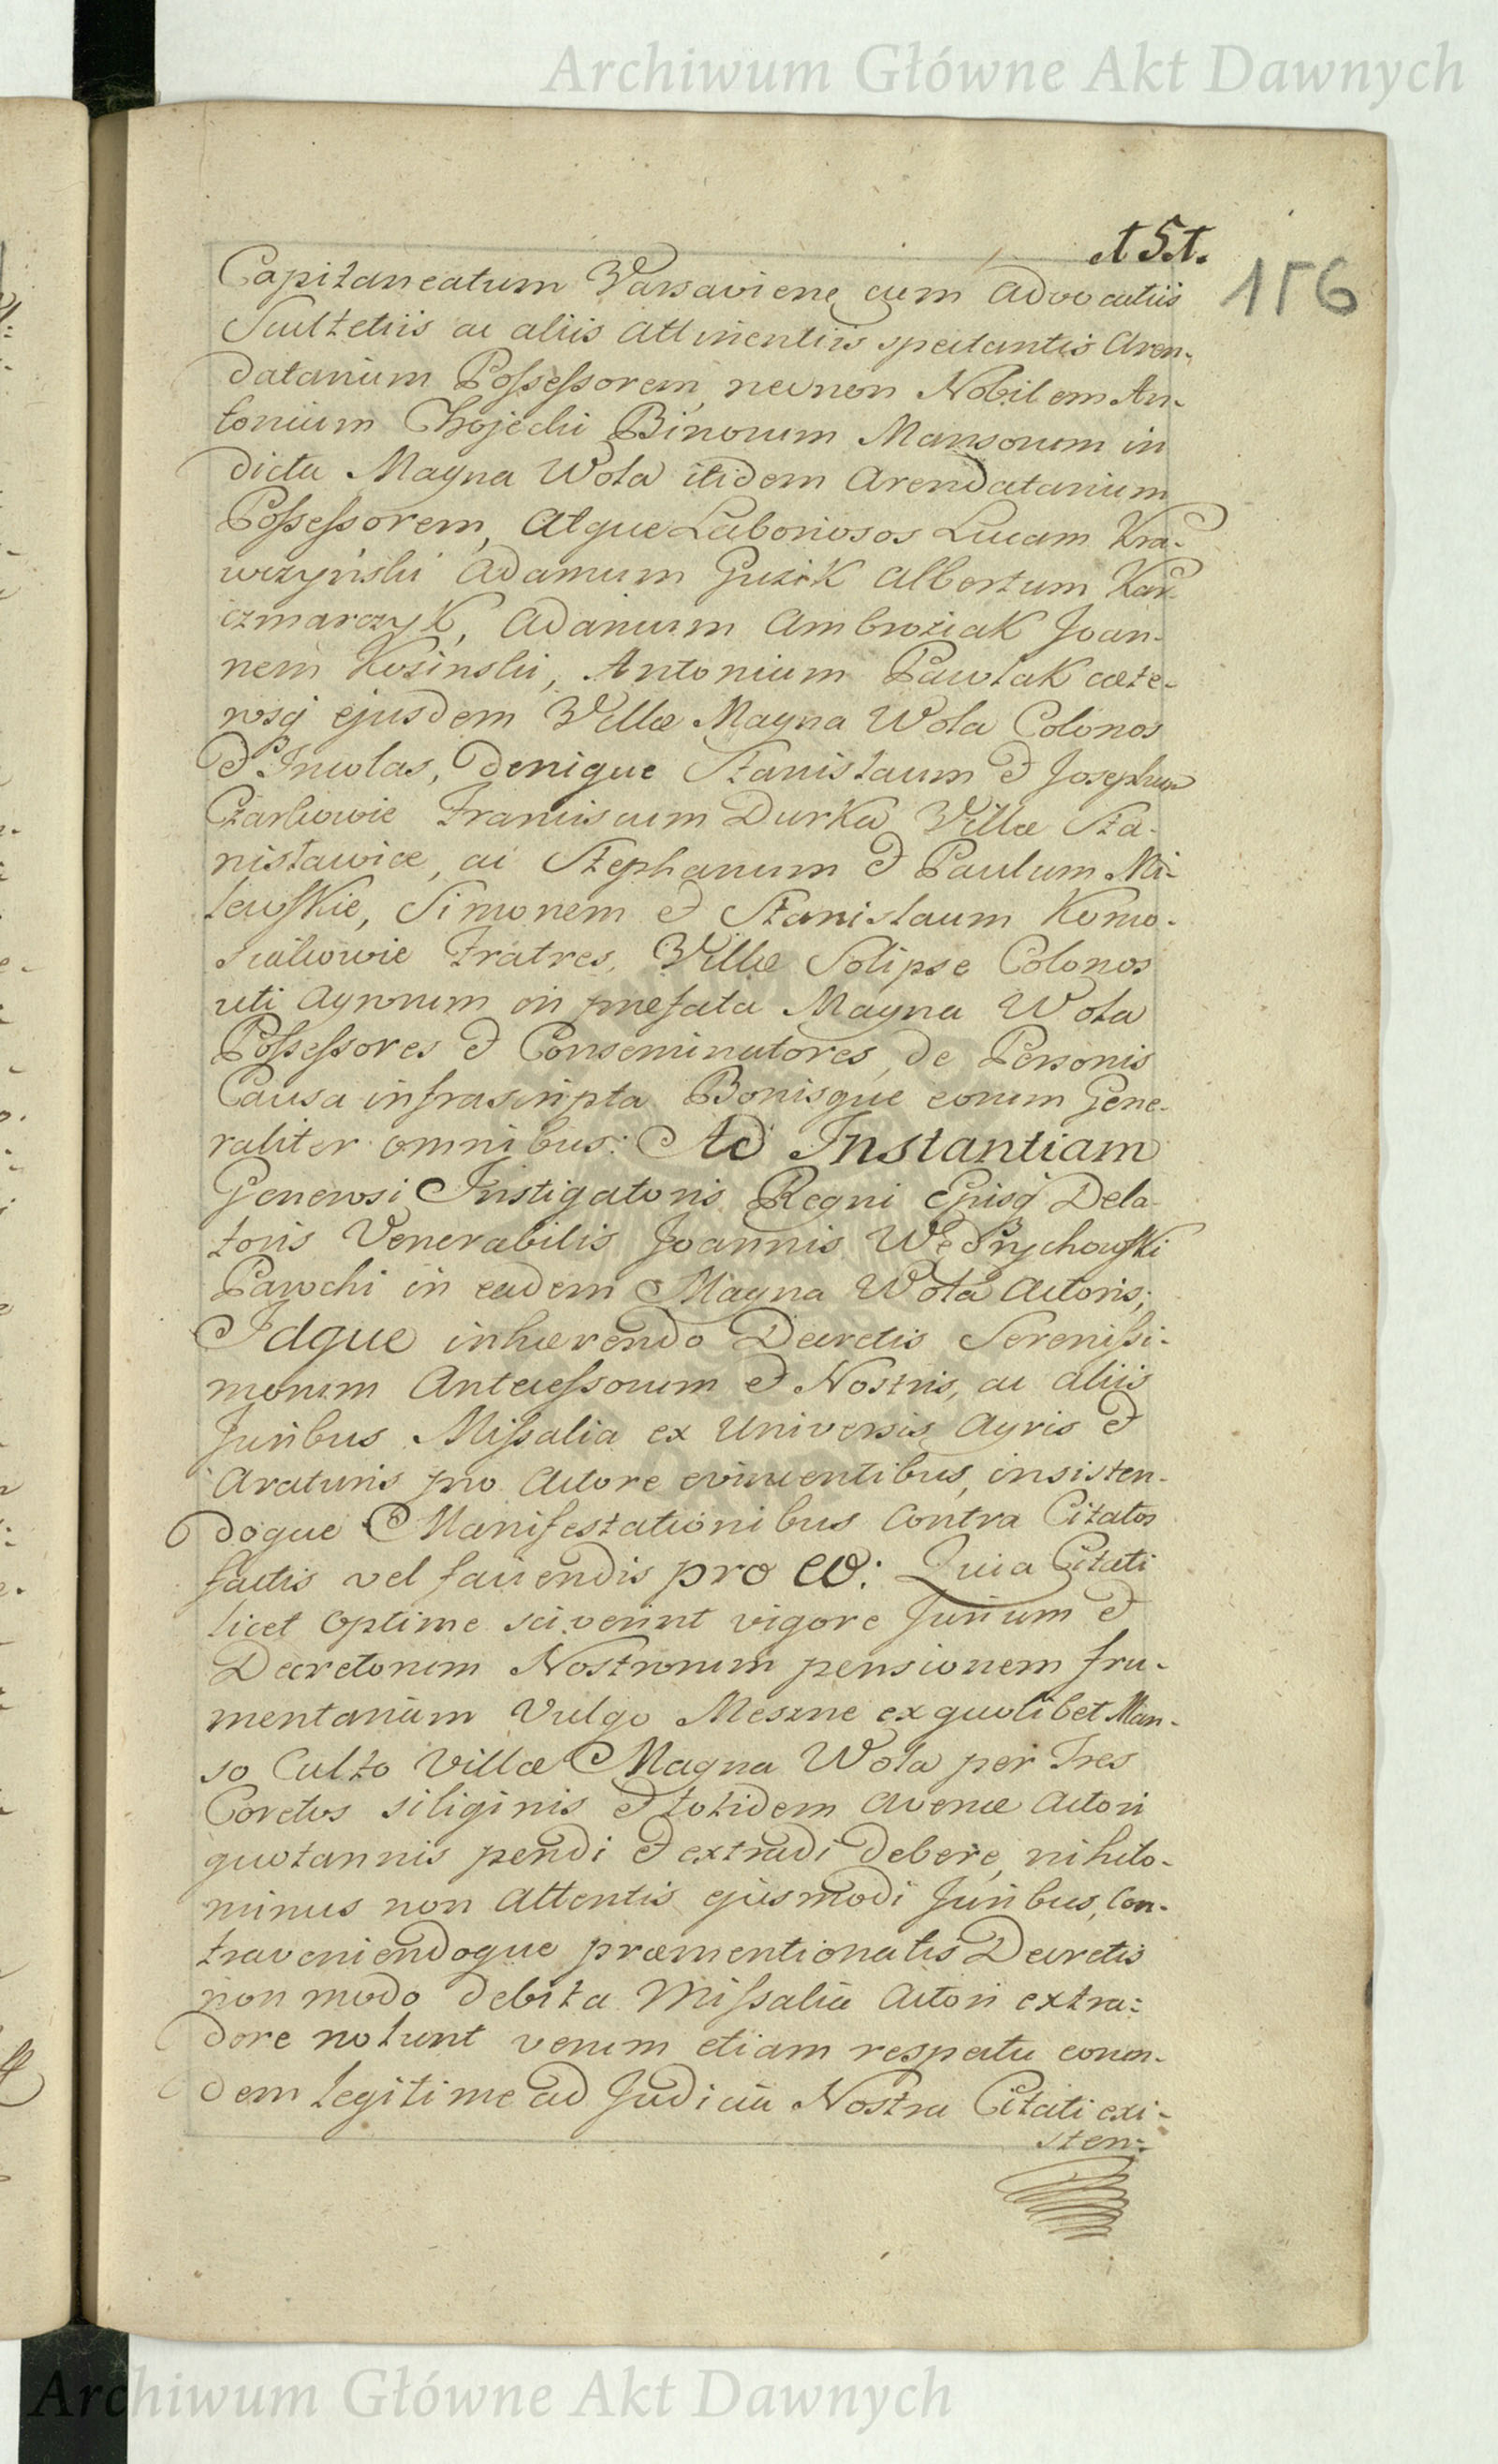 Archiwum Główne Akt Dawnych
151.
156
Capitaneatum Varsaviene cum Advocatiis
Scultetiis ac aliis attinentiis spectantis Aren-
datarium Possessorem, necnon Nobilem An-
tonium Chojecki Binorum Mansorum in
dicta Magna Wola itidem Arendatarium
Possessorem, Atque Laboriosos Lucam Kra-
wczyński Adamum Guzik Albertum Kar-
czmarczyk, Adamum Ambroziak Joan-
nem Kosinski, Antonium Pawlak cæte-
rosq ejusdem Villæ Magna Wola Colonos
et Incolas, Denique Stanislaum et Josephum
Czarkowie Franciscum Durka Villæ Sta-
nisławice, ac Stephanum et Paulum Mi-
lewskie, Simonem et Stanislaum Komo-
Fratres, Villæ Solipse Colonos
uti Agrorum in præfata Magna Wola
Possessores et Conseminatores, de Personis
Causa infrascripta Bonisque eorum Gene-
raliter omnibus: Ad Instantiam
Generosi Instigatoris Regni Ejusq Dela-
toris Venerabilis Joannis Wędrychowski
Parochi in eadem Magna Wola Actoris;
Idque inhærendo Decretis Serenissi-
morum Antecessorum et Nostris, ac aliis
Juribus Missalia ex Universis Agris et
Araturis pro Actore evincentibus, insisten-
doque Manifestationibus Contra Citatos
factis vel faciendis pro eo: Quia Citati
licet optime sciverint vigore Jurium et
Decretorum Nostrorum pensionem fru-
mentariam Vulgo Meszne ex quolibet Man-
so Culto Villæ Magna Wola per Tres
Coretos siliginis et totidem Avenæ Actori
quotannis pendi et extradi debere, nihilo-
minus non attentis ejusmodi Juribus, Con-
traveniendoque præmentionatis Decretis
non modo debita Missalia Actori extra-
dere nolunt verum etiam respectu eorun-
dem legitime ad Judicia Nostra Citati exi-
sten-
Archiwum Główne Akt Dawnych